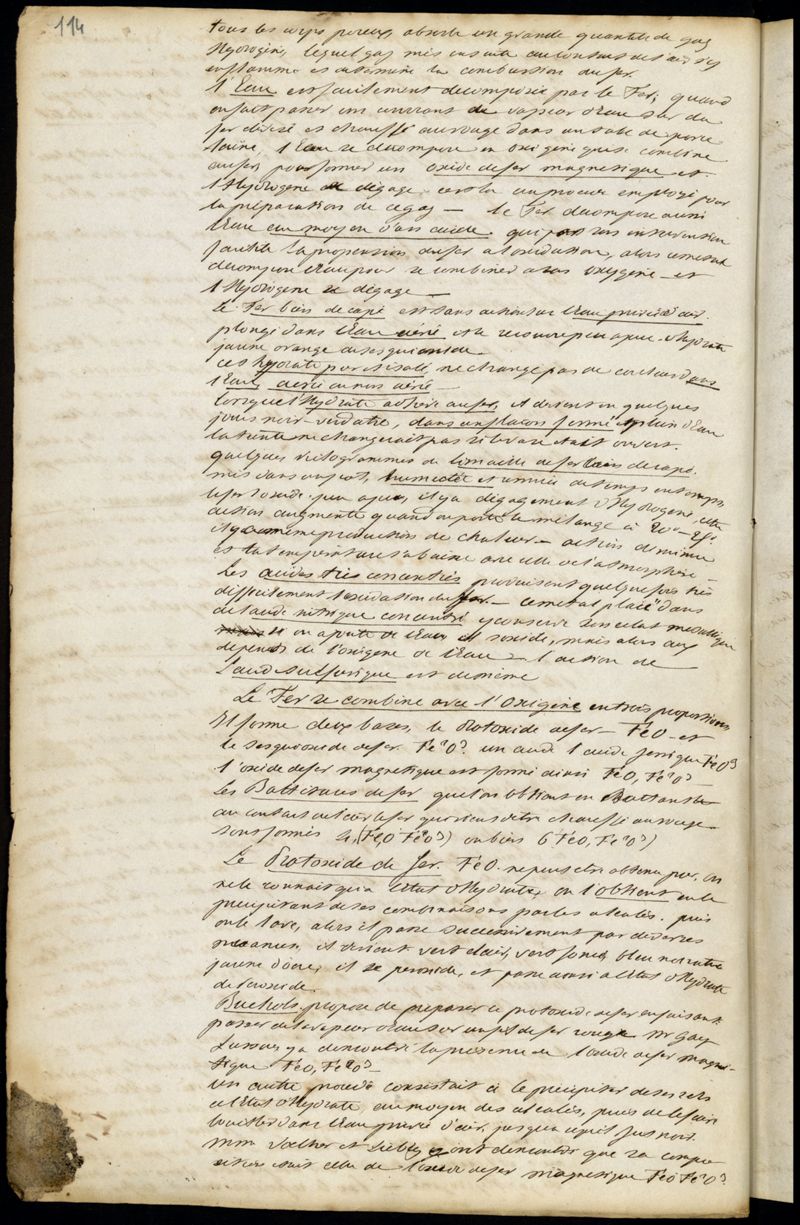 114
tous les corps poreux, absorbe une grande quantité de gaz
Hydrogène, lequel gaz mis ensuite au contact de l'air s'y
enflamme et détermine la combustion du fer.
L'Eau est facilement decomposée par le Fer, quand
on fait passer un courant de vapeur d'eau sur du
fer divisé et chauffé au rouge dans un tube de porce
laine, l'Eau se decompose en oxigène qui se combine
au fer, pour former un oxide de fer magnetique et
l'Hydrogene se dégage. c'est la un procédé employé pour
la préparation de ce gaz — le Fer decompose aussi
l'Eau au moyen d'un acide, qui par son intervention
facilite la propension du fer à l'oxidation, alors ce metal
decompose l'eau pour se combiner a son oxygène — et
l'Hydrogene se dégage —
Le Fer bien decapé est sans action sur l'Eau privée d'air.
plongé dans l'Eau aérée il se recouvre peu a peu d'Hydrate
jaune orange de sesquioxide
cet hydrate pur et isolé, ne change pas de couleur dans
l'Eau, aerée ou non aérée —
lorsque l'Hydrate adhère au fer, il devient en quelques
jours noir-verdatre, dans un flacon fermé et plein d'Eau
la teinte ne changerait pas si le vase etait ouvert.
quelques kilogrammes de limaille de fer bien decapé
mis dans un pot, humectée et remuée de temps en temps,
le fer s'oxide peu a peu, il y a dégagement d'Hydrogene, cette
action augmente quand on porte le mélange à 20° - 25°.
il y a même production de chaleur — action diminue
si la temperature s'abaisse avec celle de l'atmosphère —
Les acides très concentrés produisent quelque fois très
difficilement l'oxidation du fer. — ce metal placé dans
de l'acide nitrique concentré y conserve son eclat metallique
si on ajoute de l'Eau il s'oxide, mais alors aux
depends de l'oxigene de l'Eau — l'action de
l'acide sulfurique est de même
Le Fer se combine avec l'Oxigène en trois proportions
Il forme deux bases, le Protoxide de fer — FeO — et
le sesquioxide de fer Fe²O³ un acide l'acide ferrique FeO³
l'oxide de fer magnetique est formé ainsi FeO, Fe²O³ —
Les Battitures de fer que l'on obtient en Battant
au contact de l'air le fer qui vient d'être chauffé au rouge
sont formés 4, (FeO Fe²O³) ou bien 6 FeO, Fe²O³)
Le Protoxide de fer. FeO. ne peut etre obtenu pur, on
ne le connait qu'a l'état d'Hydrate, on l'obtient en le
precipitant de ses combinaisons par les alcalis. puis
on le lave, alors il passe successivement par diverses
nuances, il devient vert clair, vert foncé, bleu noiratre
jaune d'ocre, il se peroxide, et passe ainsi a l'Etat d'Hydrate
de peroxide.
Bucholz, propose de préparer le protoxide de fer en faisant
passer de la vapeur d'eau sur un fil de fer rouge Mr Gay
Lussac y a demontré la presence de l'oxide de fer magne-
tique FeO, Fe²O³ —
Un autre procédé consistait à le précipiter de ses sels
a l'Etat d'Hydrate au moyen des alcalis, puis de le faire
bouillir dans l'Eau privée d'air, jusqu'a ce qu'il fut noir.
MM et Liebig ont demontré que sa compo
sition etait celle de l'oxide de fer magnetique FeO Fe²O³